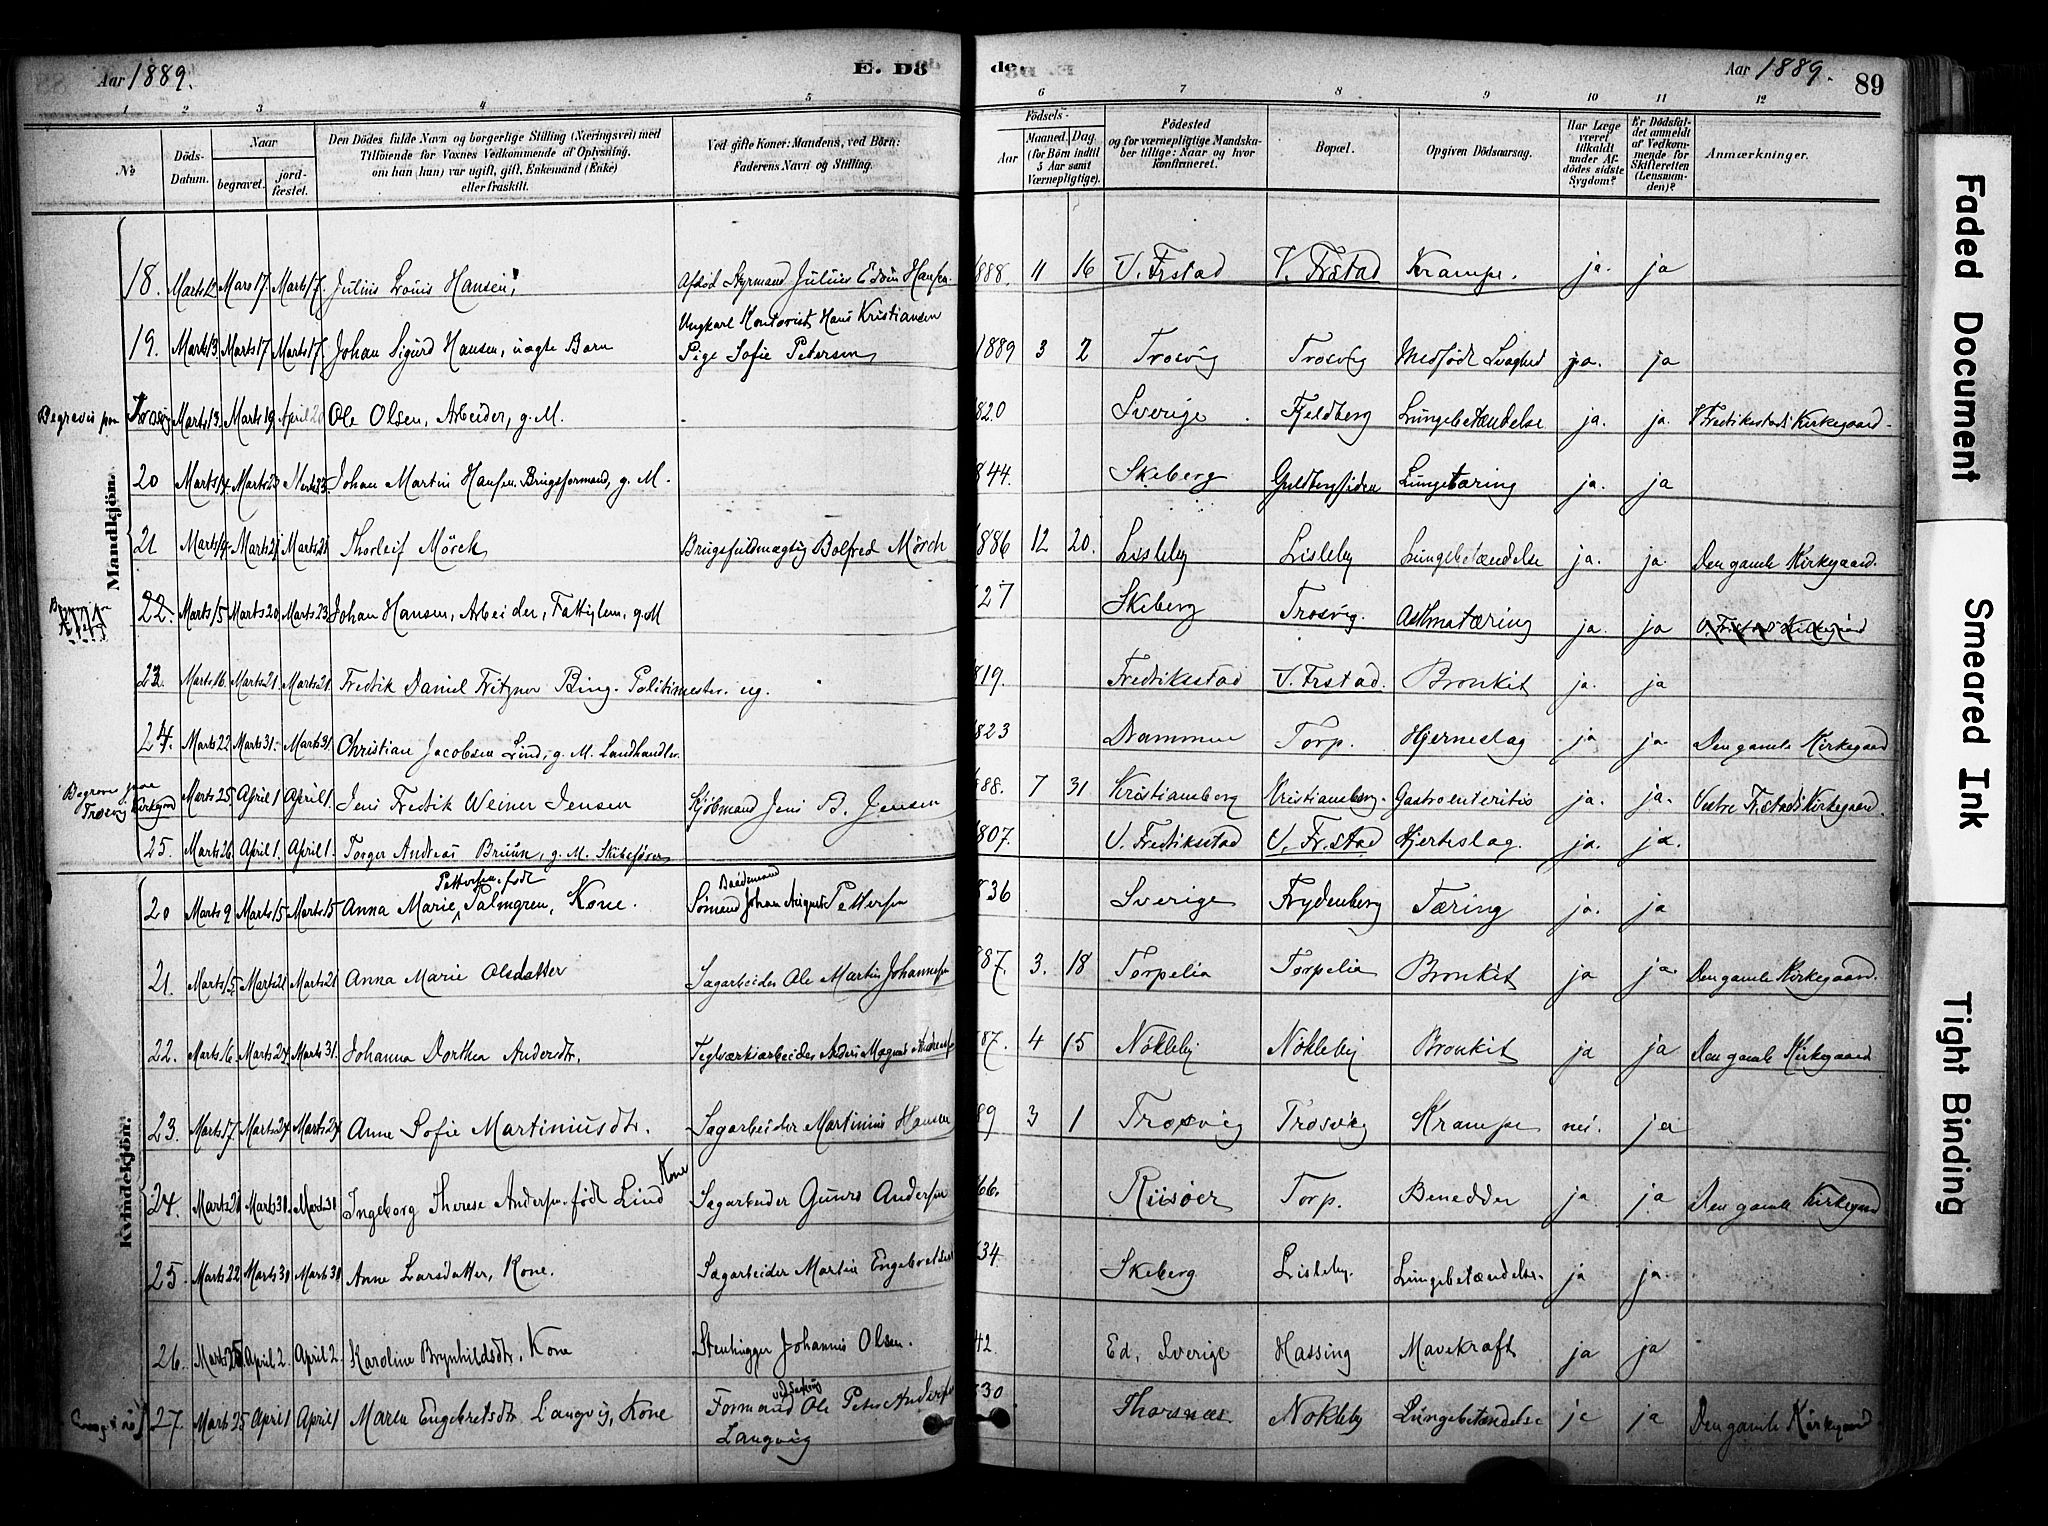 Aar 1889.
E. Dö
de.
Aar 1889.
89
1 2 3 4 5 6 7 8 9 10 11 12
No
Döds-Datum.
Naar
begravet.
jordfæstet.
Den Dödes fulde Navn og borgerlige Stilling (Næringsvei) med
Tilföiende for Voxnes Vedkommende af Oplysning,
om han (hun) var ugift, gift, Enkemand (Enke)
eller fraskilt.
Ved gifte Koner: Mandens, ved Börn:
Faderens Navn og Stilling.
Födsels-
Aar
Maaned.
Dag.
(for Börn indtil
5 Aar samt
Værnepligtige).
Födested
og for værnepligtige Mandskaber tillige: Naar og hvor
konfirmeret.
Bopæl.
Opgiven Dödsaarsag.
Har Læge
været
tilkaldt
under Afdödes sidste
Sygdom?
Er Dödsfaldet anmeldt
af Vedkommende for
Skifteretten
(Lensmanden)?
Anmærkninger.
Mandkjön.
18. Marts 12 Mars 17. Marts 17. Julius Louis Hansen, Afdød Styrmand Julius Edvin Hansen. 1888. 11 16 V. Frstad V. Frstad Krampe. ja. ja
Ungkarl Kontorist Hans Kristiansen
19. Marts 13. Marts 17 Marts 17. Johan Sigurd Hansen, uægte Barn Pige Sofie Petersen 1889 3 2 Trosvig Trosvig Medfødt Svaghed ja. ja
Begravet paa Trosvig Marts 13. Marts 19. April 20 Ole Olsen, Arbeider, g. M. 820 Sverige Fjeldberg Lungebetændelse ja. ja. V Fredriksstads Kirkegaard.
20 Marts 14. Marts 23 Marts 23. Johan Martin Hansen Brugsformand, g. M. 844. Skeberg Guldbergsiden Lungetæring ja. ja
21 Marts 14. Marts 21 Marts 21 Thorleif Mörch Brugsfuldmægtig Bolfred Mörch 886 12 20. Lisleby Lisleby Lungebetændelse ja. ja. Den gamle Kirkegaard.
22. Marts 15 Marts 20 Marts 23 Johan Hansen, Arbeider, Fattiglem, g. M 27 Skeberg Trosvig. Asthmatæring ja. ja V. Frstads Kirkegaard
23. Marts 16. Marts 21 Marts 21. Fredrik Daniel Fritzner Bing. Politimester. ug. 819. Fredriksstad V. Frstad. Bronkit ja. ja
24. Marts 22 Marts 31. Marts 31. Christian Jacobsen Lind, g. M. Landhandler. 823 Drammen Torp. Hjerneslag ja ja. Den gamle Kirkegaard
Begravet paa Trosvig Kirkegaard Marts 25 April 1 April 1. Jens Fredrik Weiner Jensen Kjöbmand Jens B. Jensen 888. 7 31 Kristiansberg Kristiansberg. Gastroenteritis ja. ja. Vestre Fr.stads Kirkegaard.
25. Marts 26. April 1. April 1. Torger Andreas Bruun, g. M. Skibsfører 807. V. Fredriksstad V. Fr.stad Hjerteslag. ja. ja.
Kvindekjön.
Pettersen. født Baadsmand
20 Marts 9 Marts 15 Marts 15 Anna Marie Palmgren, Kone. Sømand Johan August Pettersen 836 Sverige Frydenberg Tæring ja. ja
21. Marts 15. Marts 21 Marts 21 Anna Marie Olsdatter Sagarbeider Ole Martin Johannesen 887. 3. 18 Torpelia Torpelia Bronkit ja ja. Den gamle Kirkegaard.
22. Marts 16. Marts 24. Marts 31. Johanna Dorthea Andersdtr. Teglværksarbeider Anders Magnus 87. 4 15 Nökleby Nökleby Bronkit ja ja Den gamle Kirkegaard
23. Marts 17. Marts 24 Marts 24 Anne Sofie Martinusdtr. Sagarbeider Martinius Hansen 89 3 1 Trosvig Trosvig Krampe nei. ja
24. Marts 21 Marts 30. Marts 30 Ingeborg Therese Andersen født Lind Kone Sagarbeider Guners Andersen 66. Riisöer Torp. Benedder ja ja Den gamle Kirkegaard
25. Marts 22 Marts 30 Marts 30 Anne Larsdatter, Kone. Sagarbeider Martin Engebretsen 34 Skeberg Lisleby. Lungebetændelse. ja ja.
26. Marts 25 April 2. April 2. Karoline Brynhildsdtr. Kone Stenhugger Johannes Olsen. 42. Ed, Sverige Hassing Mavekræft ja ja
27. Marts 25 April 1 April 1 Maren Engebretsdtr. Langvig, Kone Formand Ole Peter Andersen Langvig 830 Thorsnæs Nökleby Lungebetændelse ja ja Den gamle Kirkegaard
Faded Document
Smeared Ink
Tight Binding